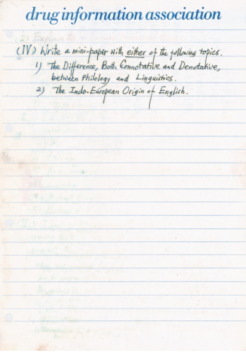 drug information association
(IV) Write a mini-paper with either of the following topics.
1) The Difference, Both Connotative and Denotative,
between Philology and Linguistics.
2) The Indo-European Origin of English.